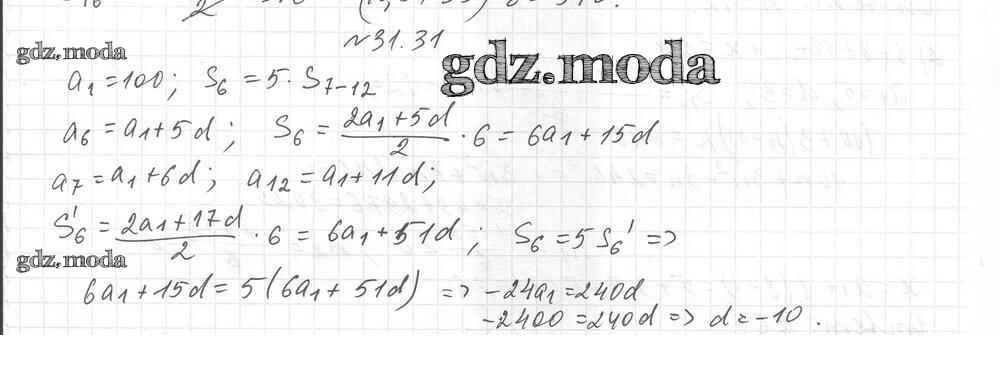 №31.31
gdz.moda
gdz.moda
a₁ = 100; S₆ = 5 · S₇₋₁₂
a₆ = a₁ + 5d; S₆ = (2a₁ + 5d)/2 · 6 = 6a₁ + 15d
a₇ = a₁ + 6d; a₁₂ = a₁ + 11d;
S₆' = (2a₁ + 17d)/2 · 6 = 6a₁ + 51d; S₆ = 5S₆' =>
gdz.moda
6a₁ + 15d = 5(6a₁ + 51d) => -24a₁ = 240d
-2400 = 240d => d = -10.